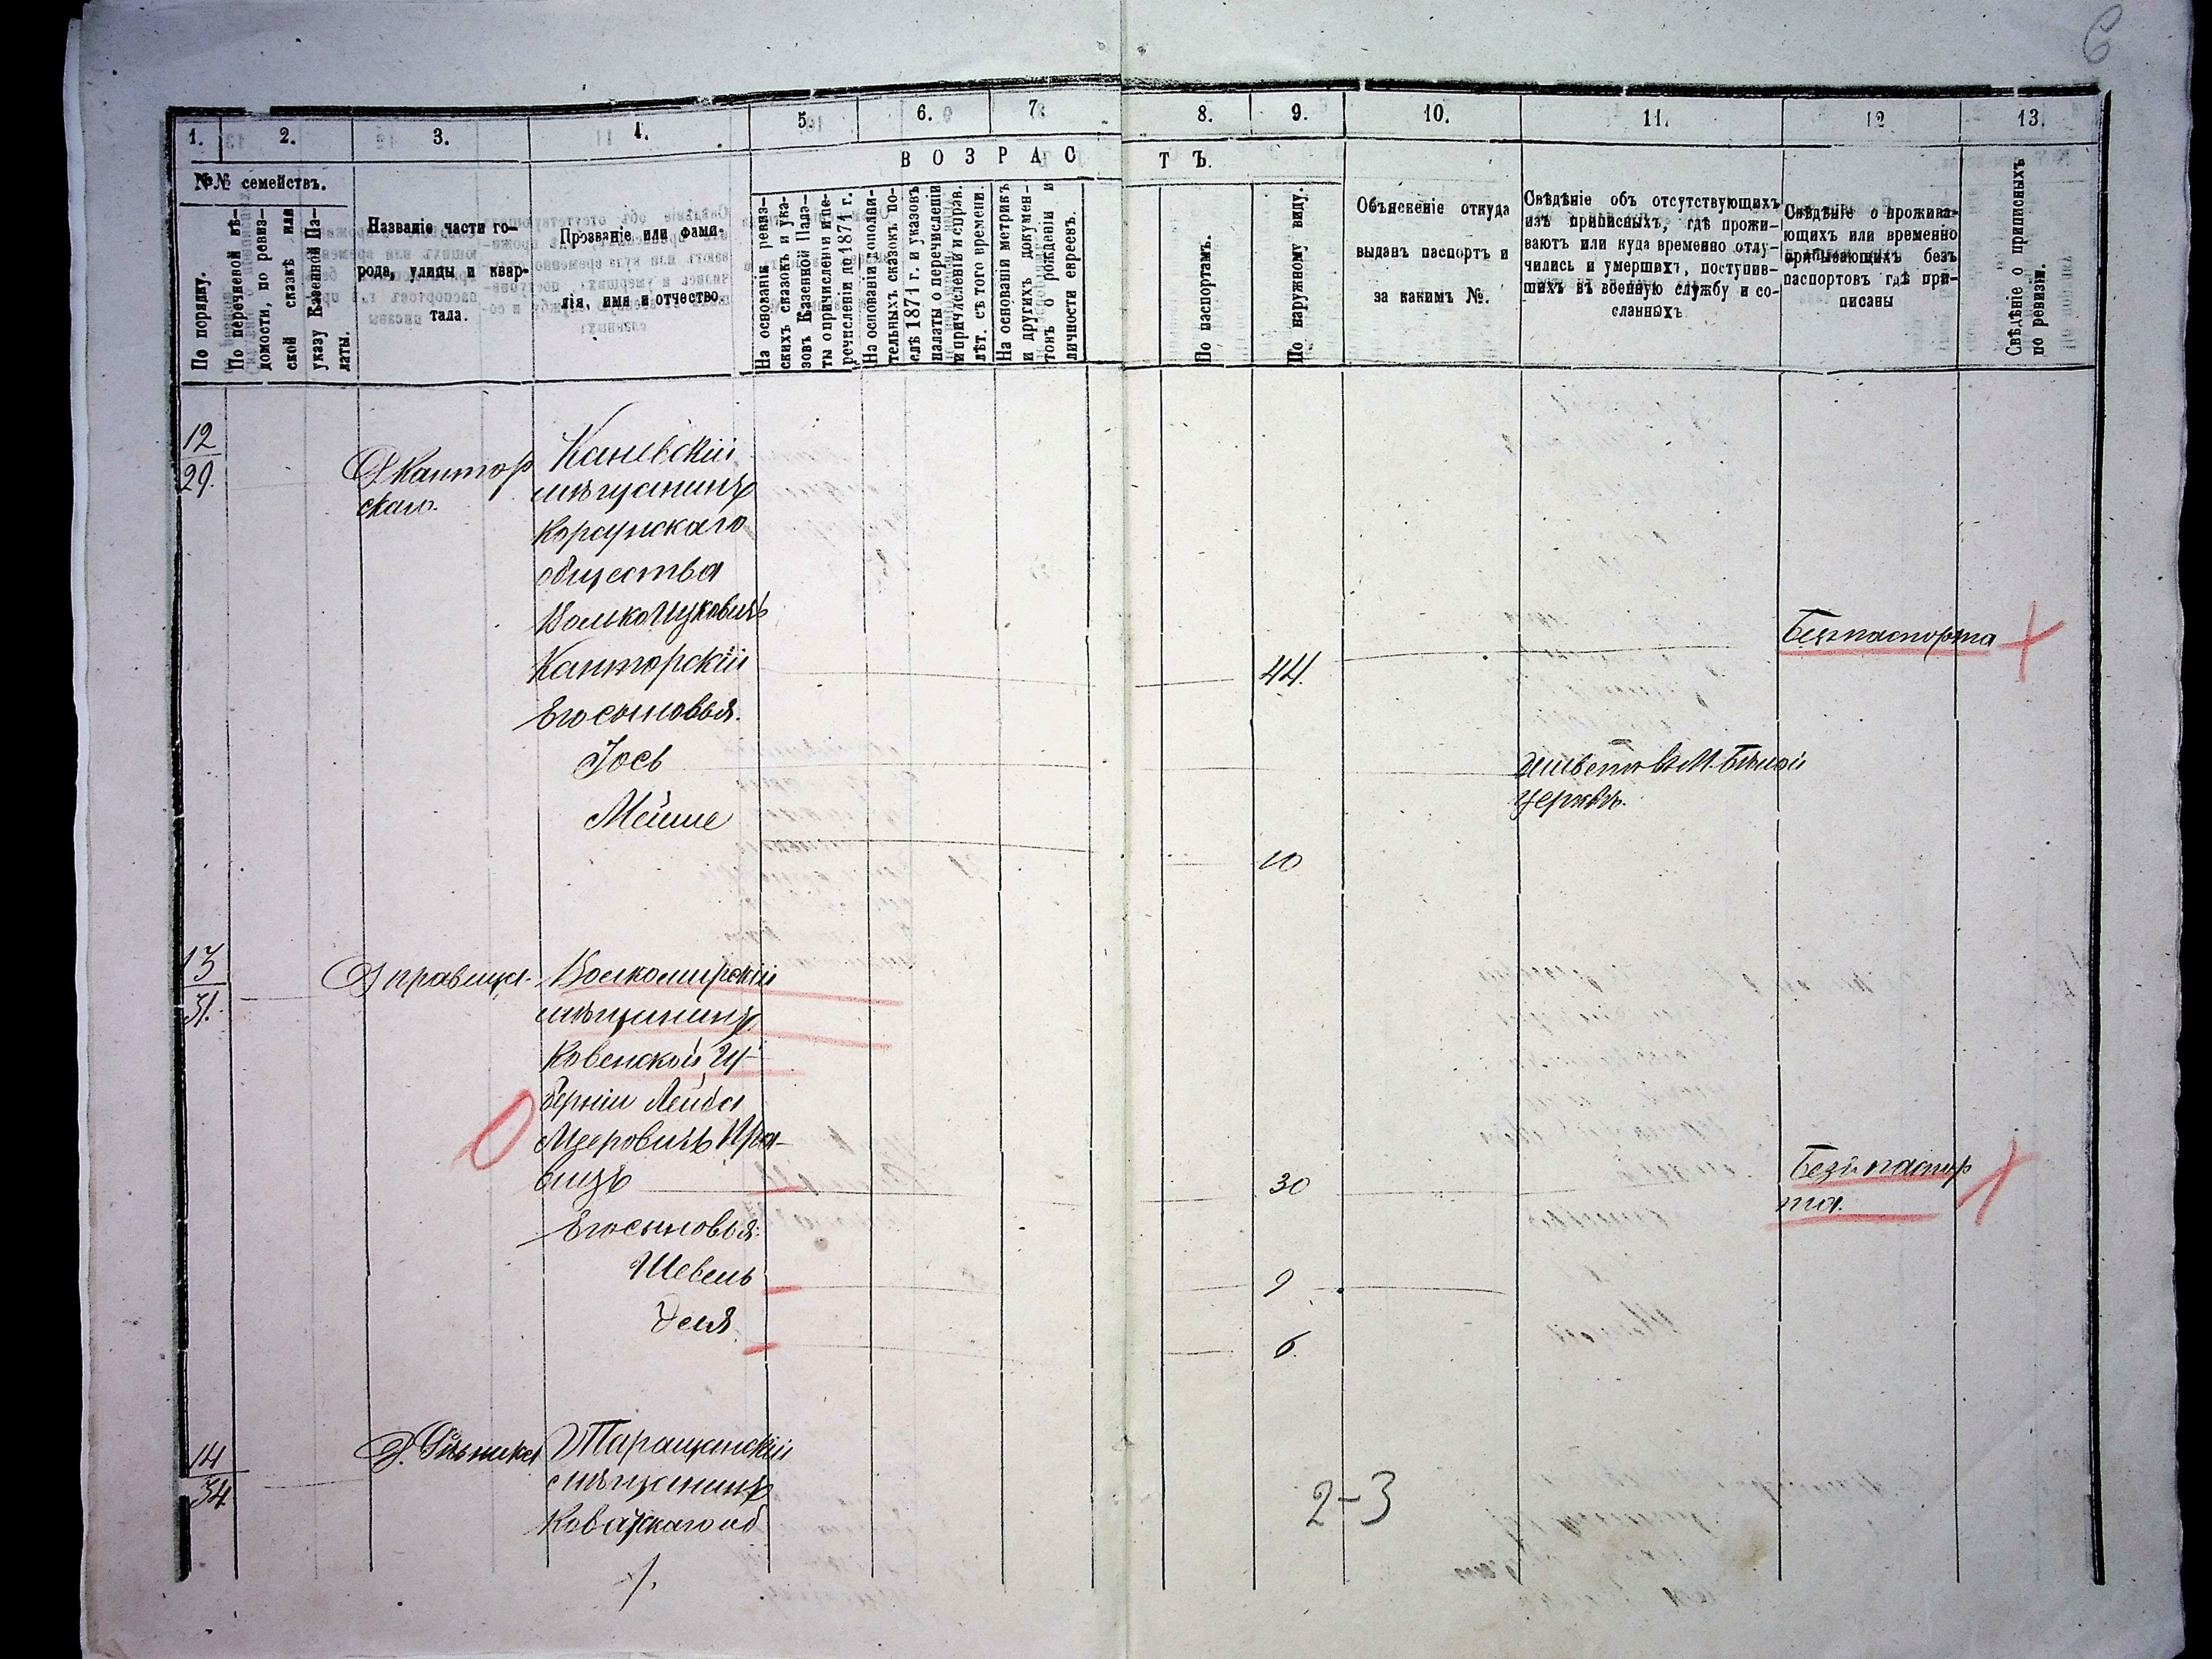 6
1. 2. 3. 4. 5. 6. 7. 8. 9. 10. 11. 12 13.
В О З Р А С Т Ъ.
№№ семействъ.
По порядку.
По перечневой вѣ-
домости, по ревиз-
ской сказкѣ или
указу Казенной Па-
латы.
Названіе части го-
рода, улицы и квар-
тала.
Прозваніе или фами-
лія, имя и отчество.
На основаніи ревиз-
скихъ сказокъ и ука-
зовъ Казенной Пала-
ты о причисленіи и пе-
речисленіи до 1871 г.
На основаніи дополни-
тельныхъ сказокъ по-
слѣ 1871 г. и указовъ
палаты о перечисленіи
и причисленіи и справ.
лѣт. съ того времени.
На основаніи метрикъ
и другихъ докумен-
товъ о рожденіи и
личности евреевъ.
По паспортамъ.
По наружному виду.
Объясненіе откуда
выданъ паспортъ и
за какимъ №.
Свѣдѣніе объ отсутствующихъ
изъ приписныхъ, гдѣ прожи-
ваютъ или куда временно отлу-
чились и умершихъ, поступив-
шихъ въ военную службу и со-
сланныхъ
Свѣдѣніе о прожива-
ющихъ или временно
пребывающихъ безъ
паспортовъ гдѣ при-
писаны
Свѣдѣніе о приписныхъ
по ревизіи.
12
29.
Д Кантор
скаго.
Каневскій
мѣщанинъ
Корсунскаго
общества
Волько Ицковичъ
Канторскій
44.
Безъ паспорта
Его сыновья.
Іось
живетъ въ М. Бѣлой
Церкви.
Мейше
10
13
31.
Д Правица
Волкомирскій
мѣщанинъ
Ковенской Гу-
берніи Лейба
Мееровичъ Пра-
вицъ
30
Безъ паспор
та.
Его сыновья.
Шевель
9
Деля
6.
14
34
Д.
Таращанскій
мѣщанинъ
об
2-3